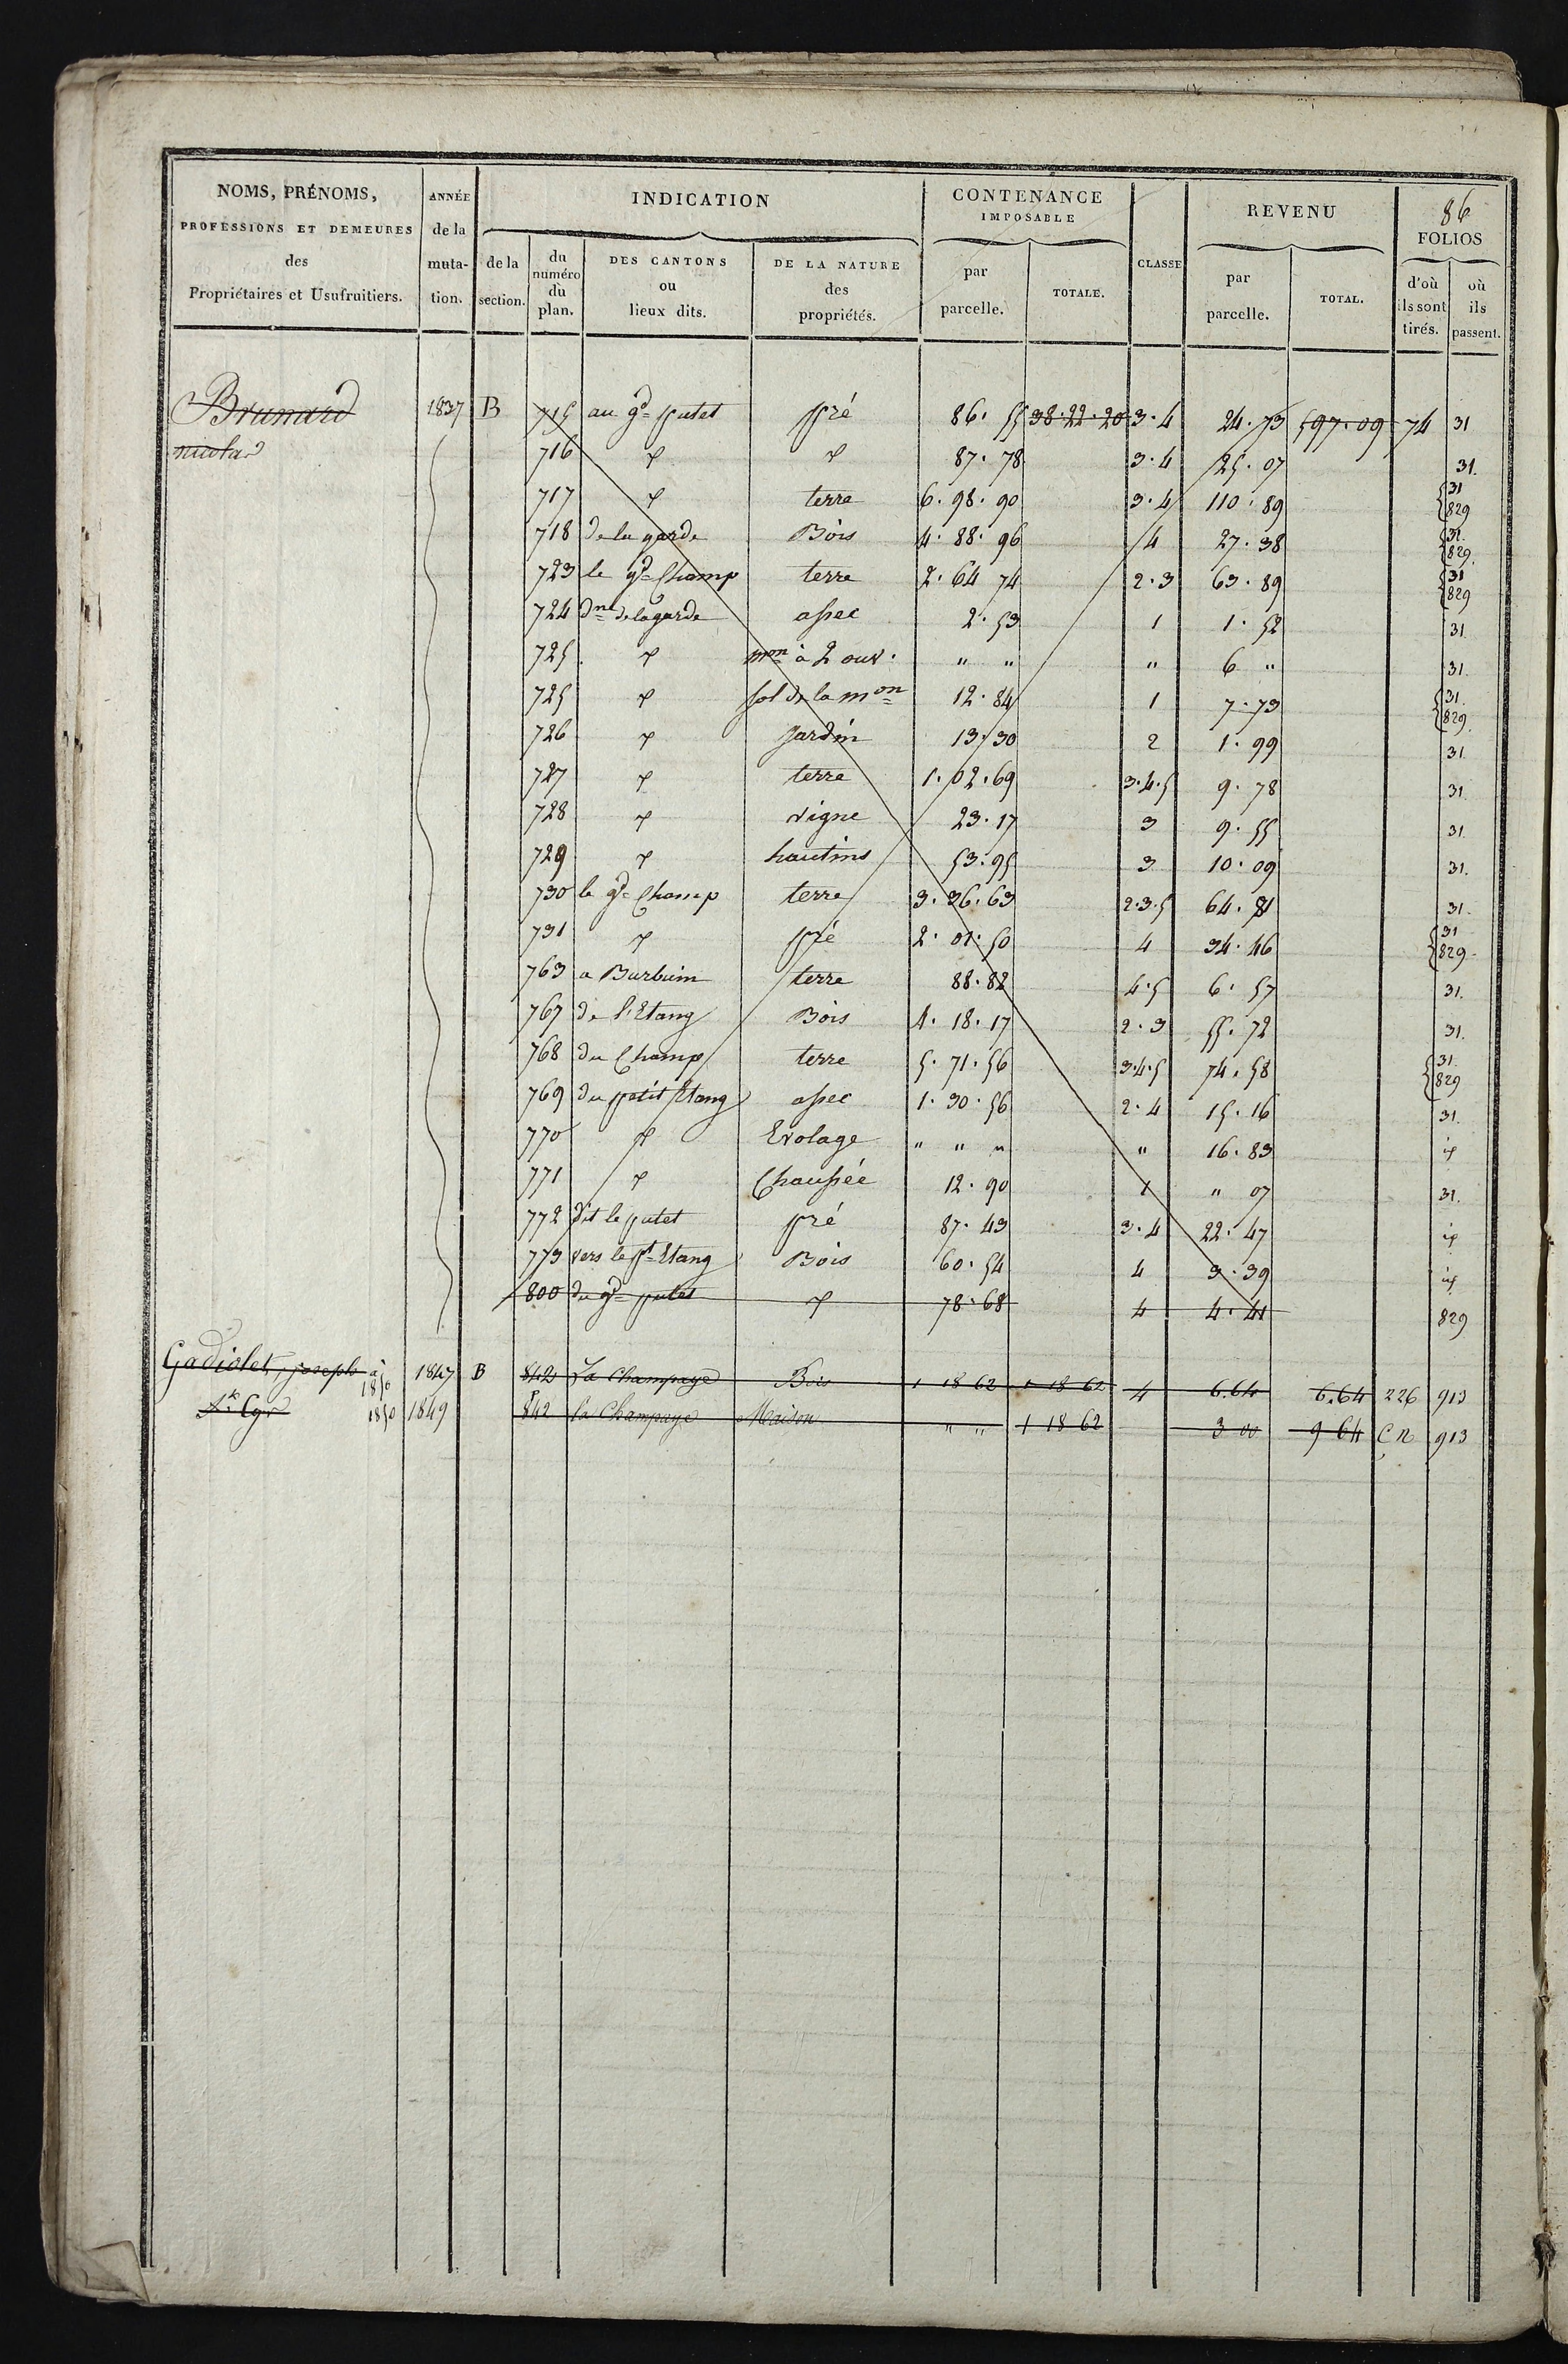 86
NOMS, PRÉNOMS, PROFESSIONS ET DEMEURES des Propriétaires et Usufruitiers.
ANNÉE de la muta- tion.
INDICATION
de la section.
du numéro du plan.
DES CANTONS ou lieux dits.
DE LA NATURE des propriétés.
CONTENANCE IMPOSABLE
par parcelle.
TOTALE.
CLASSE
REVENU
par parcelle.
TOTAL.
FOLIOS
d'où ils sont tirés.
où ils passent.
Brunard 1837 B 715 au gd putet pré 86. 55 38.22.20 3.4 24.73 597.09 74 31
nicolas 716 d d 87. 78 3.4 25. 07 31.
717 d terre 6. 98. 90 3.4 110. 89 31 829
718 de la garde Bois 4. 88. 96 4 27. 38 31. 829.
723 le gd Champ terre 2. 64 74 2.3 63. 89 31 829
724 dne de lagarde assec 2. 53 1 1. 52 31
725. d mon à 2 ouv. " " " 6 " 31.
725 d sol de la mon 12. 84 1 7. 73 31. 829.
726 d Jardin 13. 30 2 1. 99 31
727 d terre 1. 02. 69 3.4.5 9. 78 31.
728 d vigne 23. 17 3 9. 55 31.
729 d hautins 53. 95 3 10. 09 31.
730 le gd Champ terre 3. 36. 63 2.3.5 64. 81 31.
731 d pré 2. 01. 50 4 34. 46 31 829
763 a Burbuin terre 88. 82 4.5 6. 57 31.
767 de l'Etang Bois 4. 18. 17 2.3 55. 72 31.
768 du Champ terre 5. 71. 56 3.4.5 74. 58 31. 829
769 du petit Etang assec 1. 30. 56 2.4 15. 16 31.
770 d Evolage " " " " 16. 83 id
771 d Chaussée 12. 90 1 " 07 31.
772 dit le putet pré 87. 43 3.4 22. 47 id
773 vers le pt Etang Bois 60. 54 4 3. 39 id
800 du gd putet d 78. 68 4 4. 41 829
Gadiolet, joseph à 1850 1847 B 842 La Champaye Bois 1 18 62 1 18 62 4 6.64 6.64 226 913
St Cyr 1850 1849 842 la Champaye Maison " " 1 18 62 3 00 9 64 C N 913